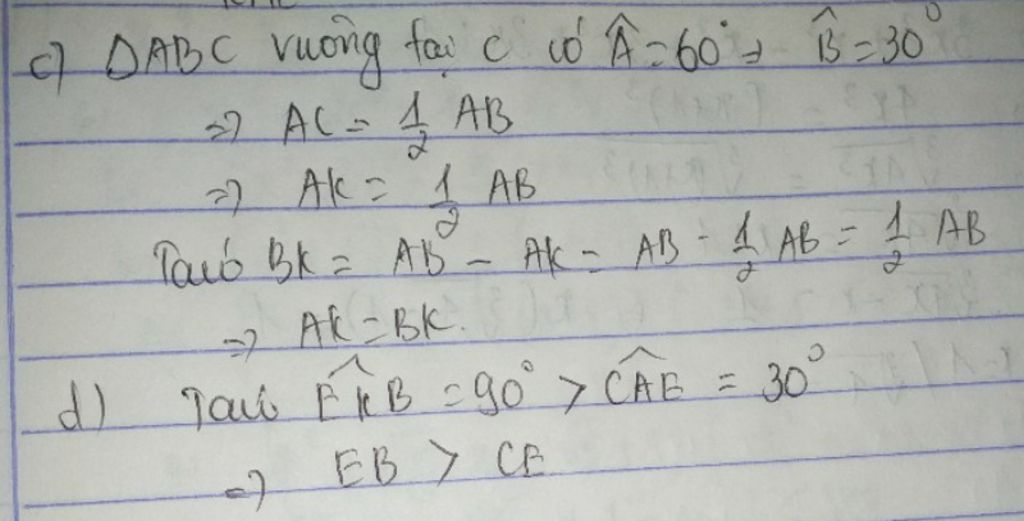 c) ΔABC vuông tại C có Â = 60° → B̂ = 30°
=> AC = 1/2 AB
=> AK = 1/2 AB
Ta có BK = AB - AK = AB - 1/2 AB = 1/2 AB
=> AK = BK.
d) Ta có \widehat{EKB} = 90° > \widehat{CAE} = 30°
=> EB > CE